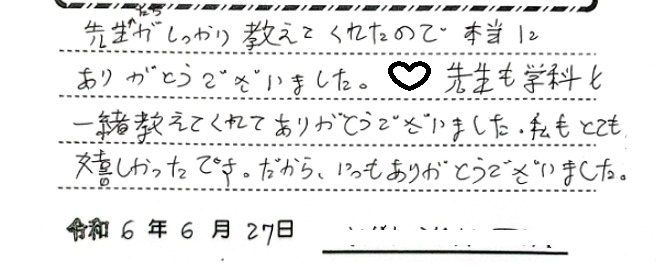 先生たちがしっかり教えてくれたので本当に
ありがとうございました。♡先生も学科と
一緒教えてくれてありがとうございました.私もとても
嬉しかったです。だから、いつもありがとうございました。
令和6年6月27日